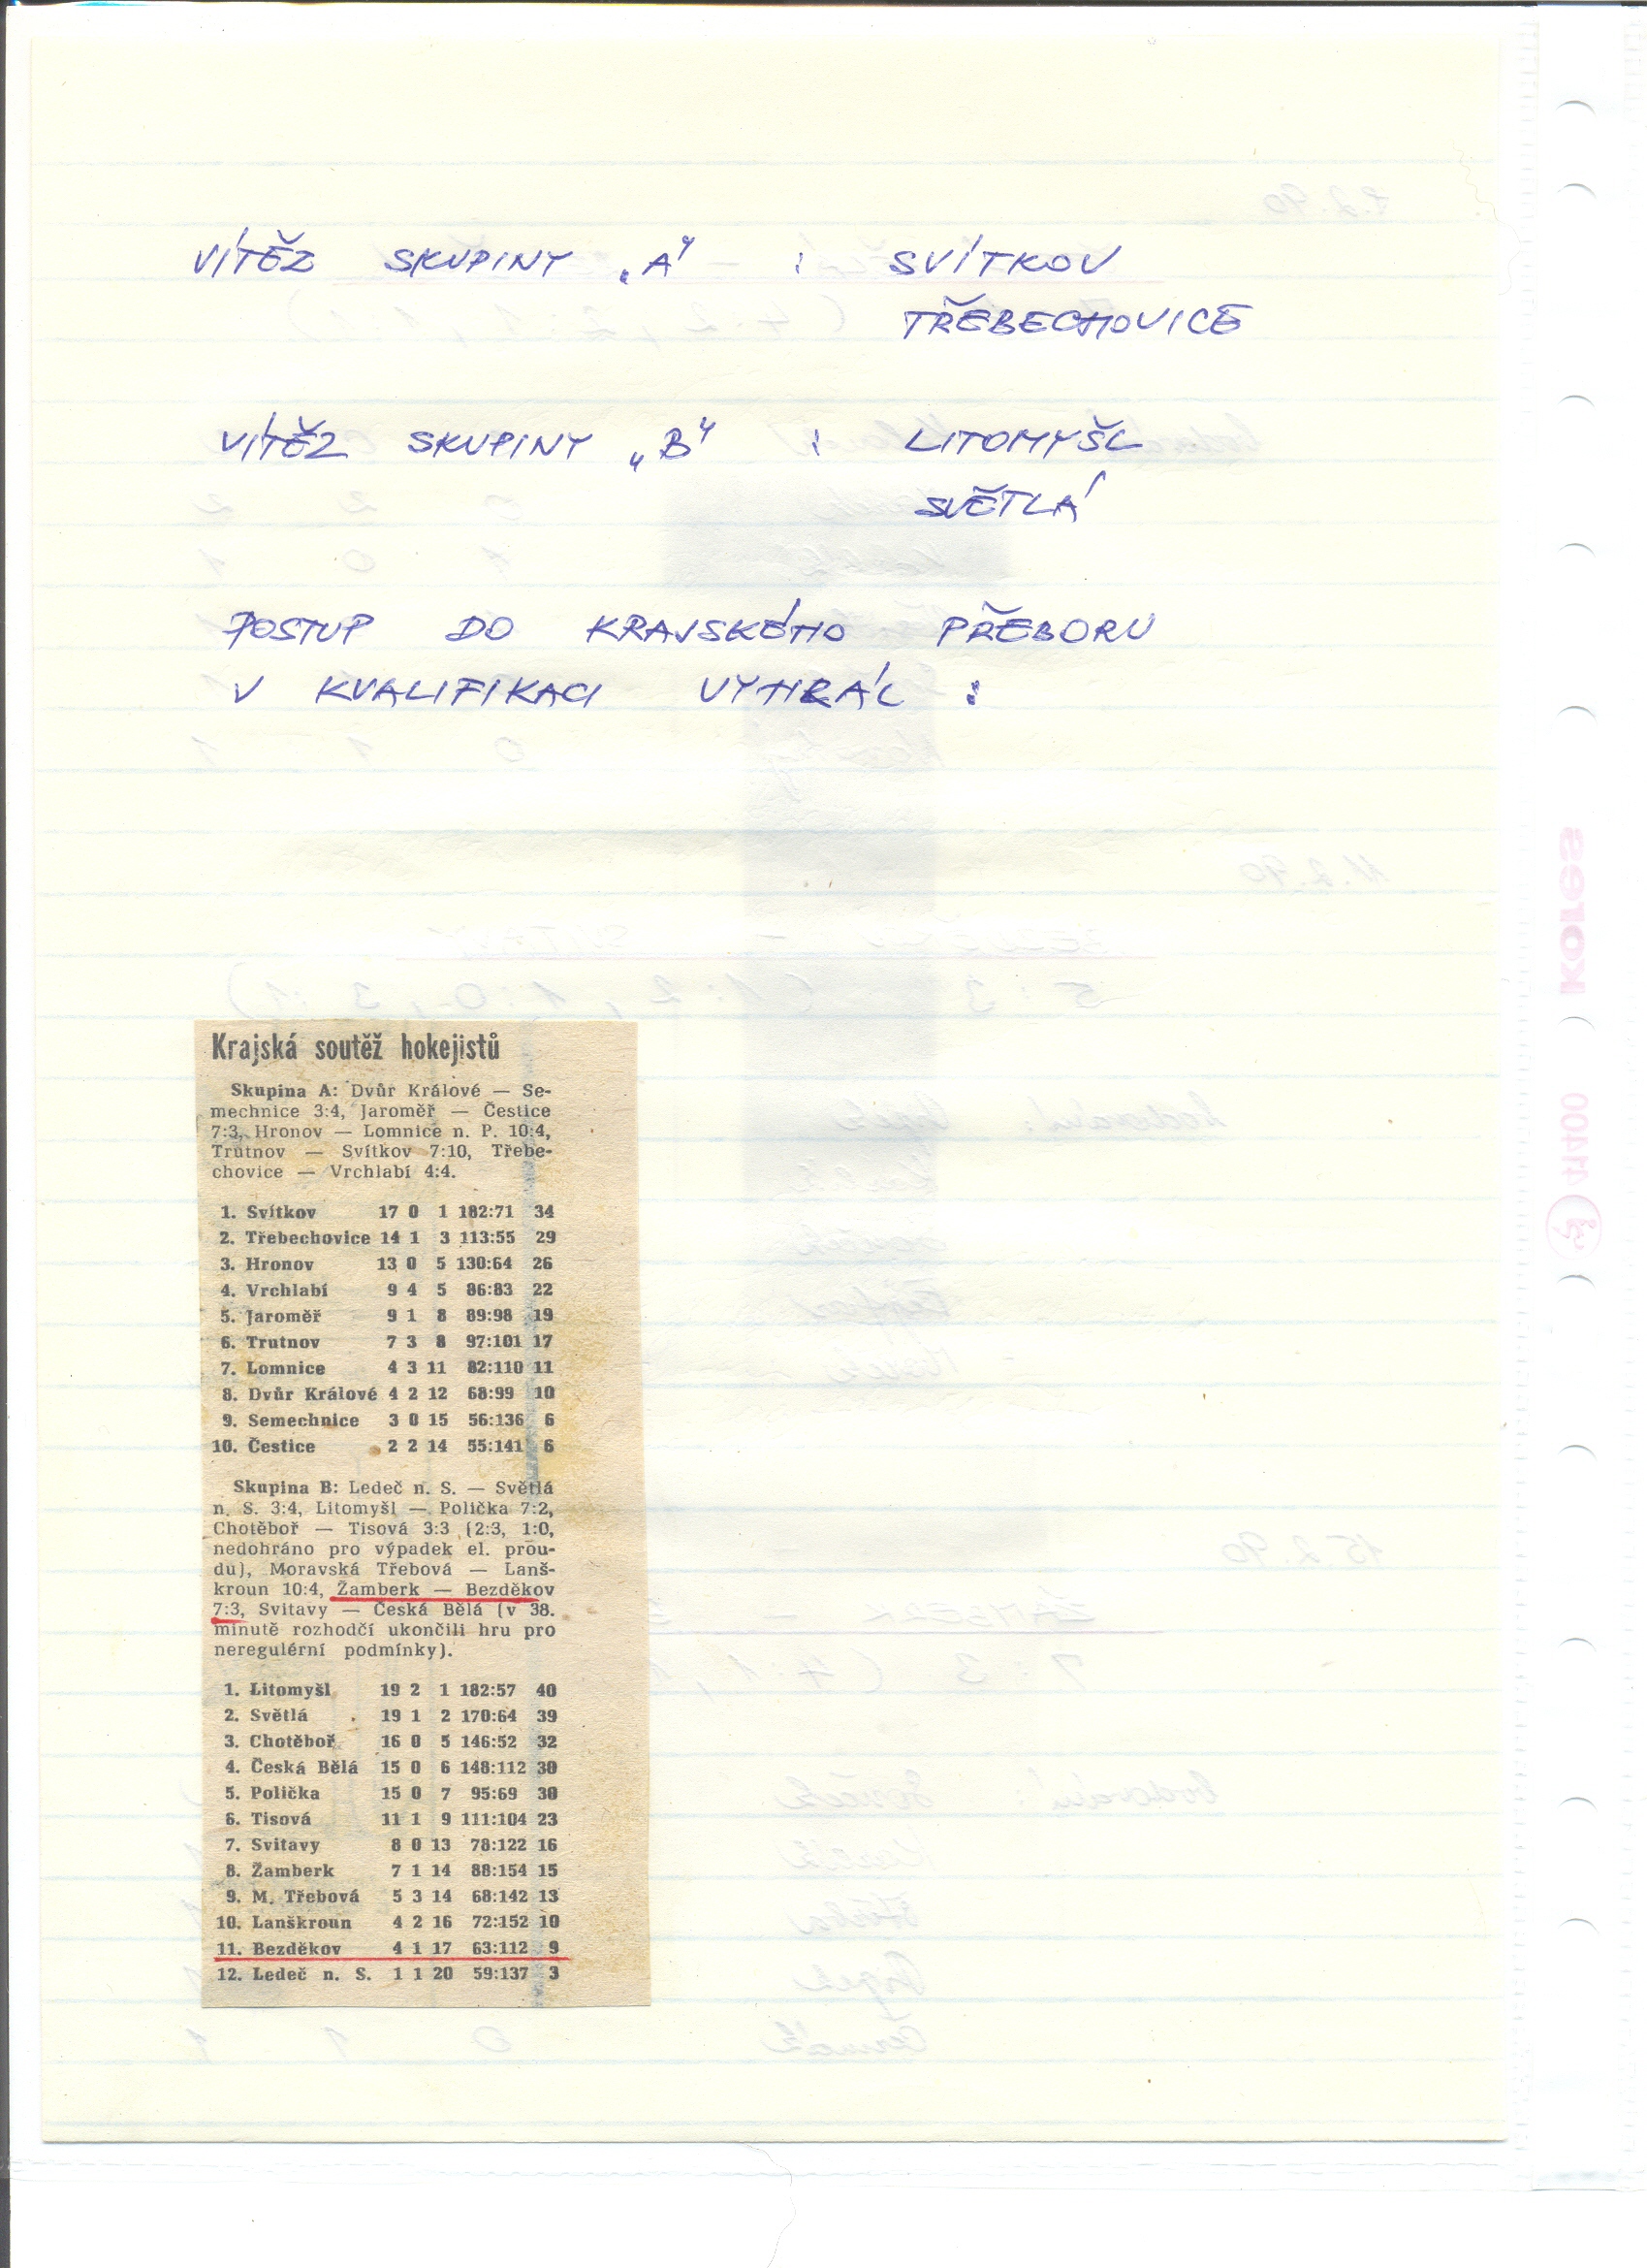 VÍTĚZ SKUPINY „A" : SVÍTKOV
TŘEBECHOVICE
VÍTĚZ SKUPINY „B" : LITOMYŠL
SVĚTLÁ
POSTUP DO KRAJSKÉHO PŘEBORU
V KVALIFIKACI VYHRÁL :
Krajská soutěž hokejistů
Skupina A: Dvůr Králové — Se-
mechnice 3:4, Jaroměř — Čestice
7:3, Hronov — Lomnice n. P. 10:4,
Trutnov — Svítkov 7:10, Třebe-
chovice — Vrchlabí 4:4.
1. Svítkov 17 0 1 182:71 34
2. Třebechovice 14 1 3 113:55 29
3. Hronov 13 0 5 130:64 26
4. Vrchlabí 9 4 5 86:83 22
5. Jaroměř 9 1 8 89:98 19
6. Trutnov 7 3 8 97:101 17
7. Lomnice 4 3 11 82:110 11
8. Dvůr Králové 4 2 12 68:99 10
9. Semechnice 3 0 15 56:136 6
10. Čestice 2 2 14 55:141 6
Skupina B: Ledeč n. S. — Světlá
n. S. 3:4, Litomyšl — Polička 7:2,
Chotěboř — Tisová 3:3 (2:3, 1:0,
nedohráno pro výpadek el. prou-
du), Moravská Třebová — Lanš-
kroun 10:4, Žamberk — Bezděkov
7:3, Svitavy — Česká Bělá (v 38.
minutě rozhodčí ukončili hru pro
neregulérní podmínky).
1. Litomyšl 19 2 1 182:57 40
2. Světlá 19 1 2 170:64 39
3. Chotěboř 16 0 5 146:52 32
4. Česká Bělá 15 0 6 148:112 30
5. Polička 15 0 7 95:69 30
6. Tisová 11 1 9 111:104 23
7. Svitavy 8 0 13 78:122 16
8. Žamberk 7 1 14 88:154 15
9. M. Třebová 5 3 14 68:142 13
10. Lanškroun 4 2 16 72:152 10
11. Bezděkov 4 1 17 63:112 9
12. Ledeč n. S. 1 1 20 59:137 3
kores
11400